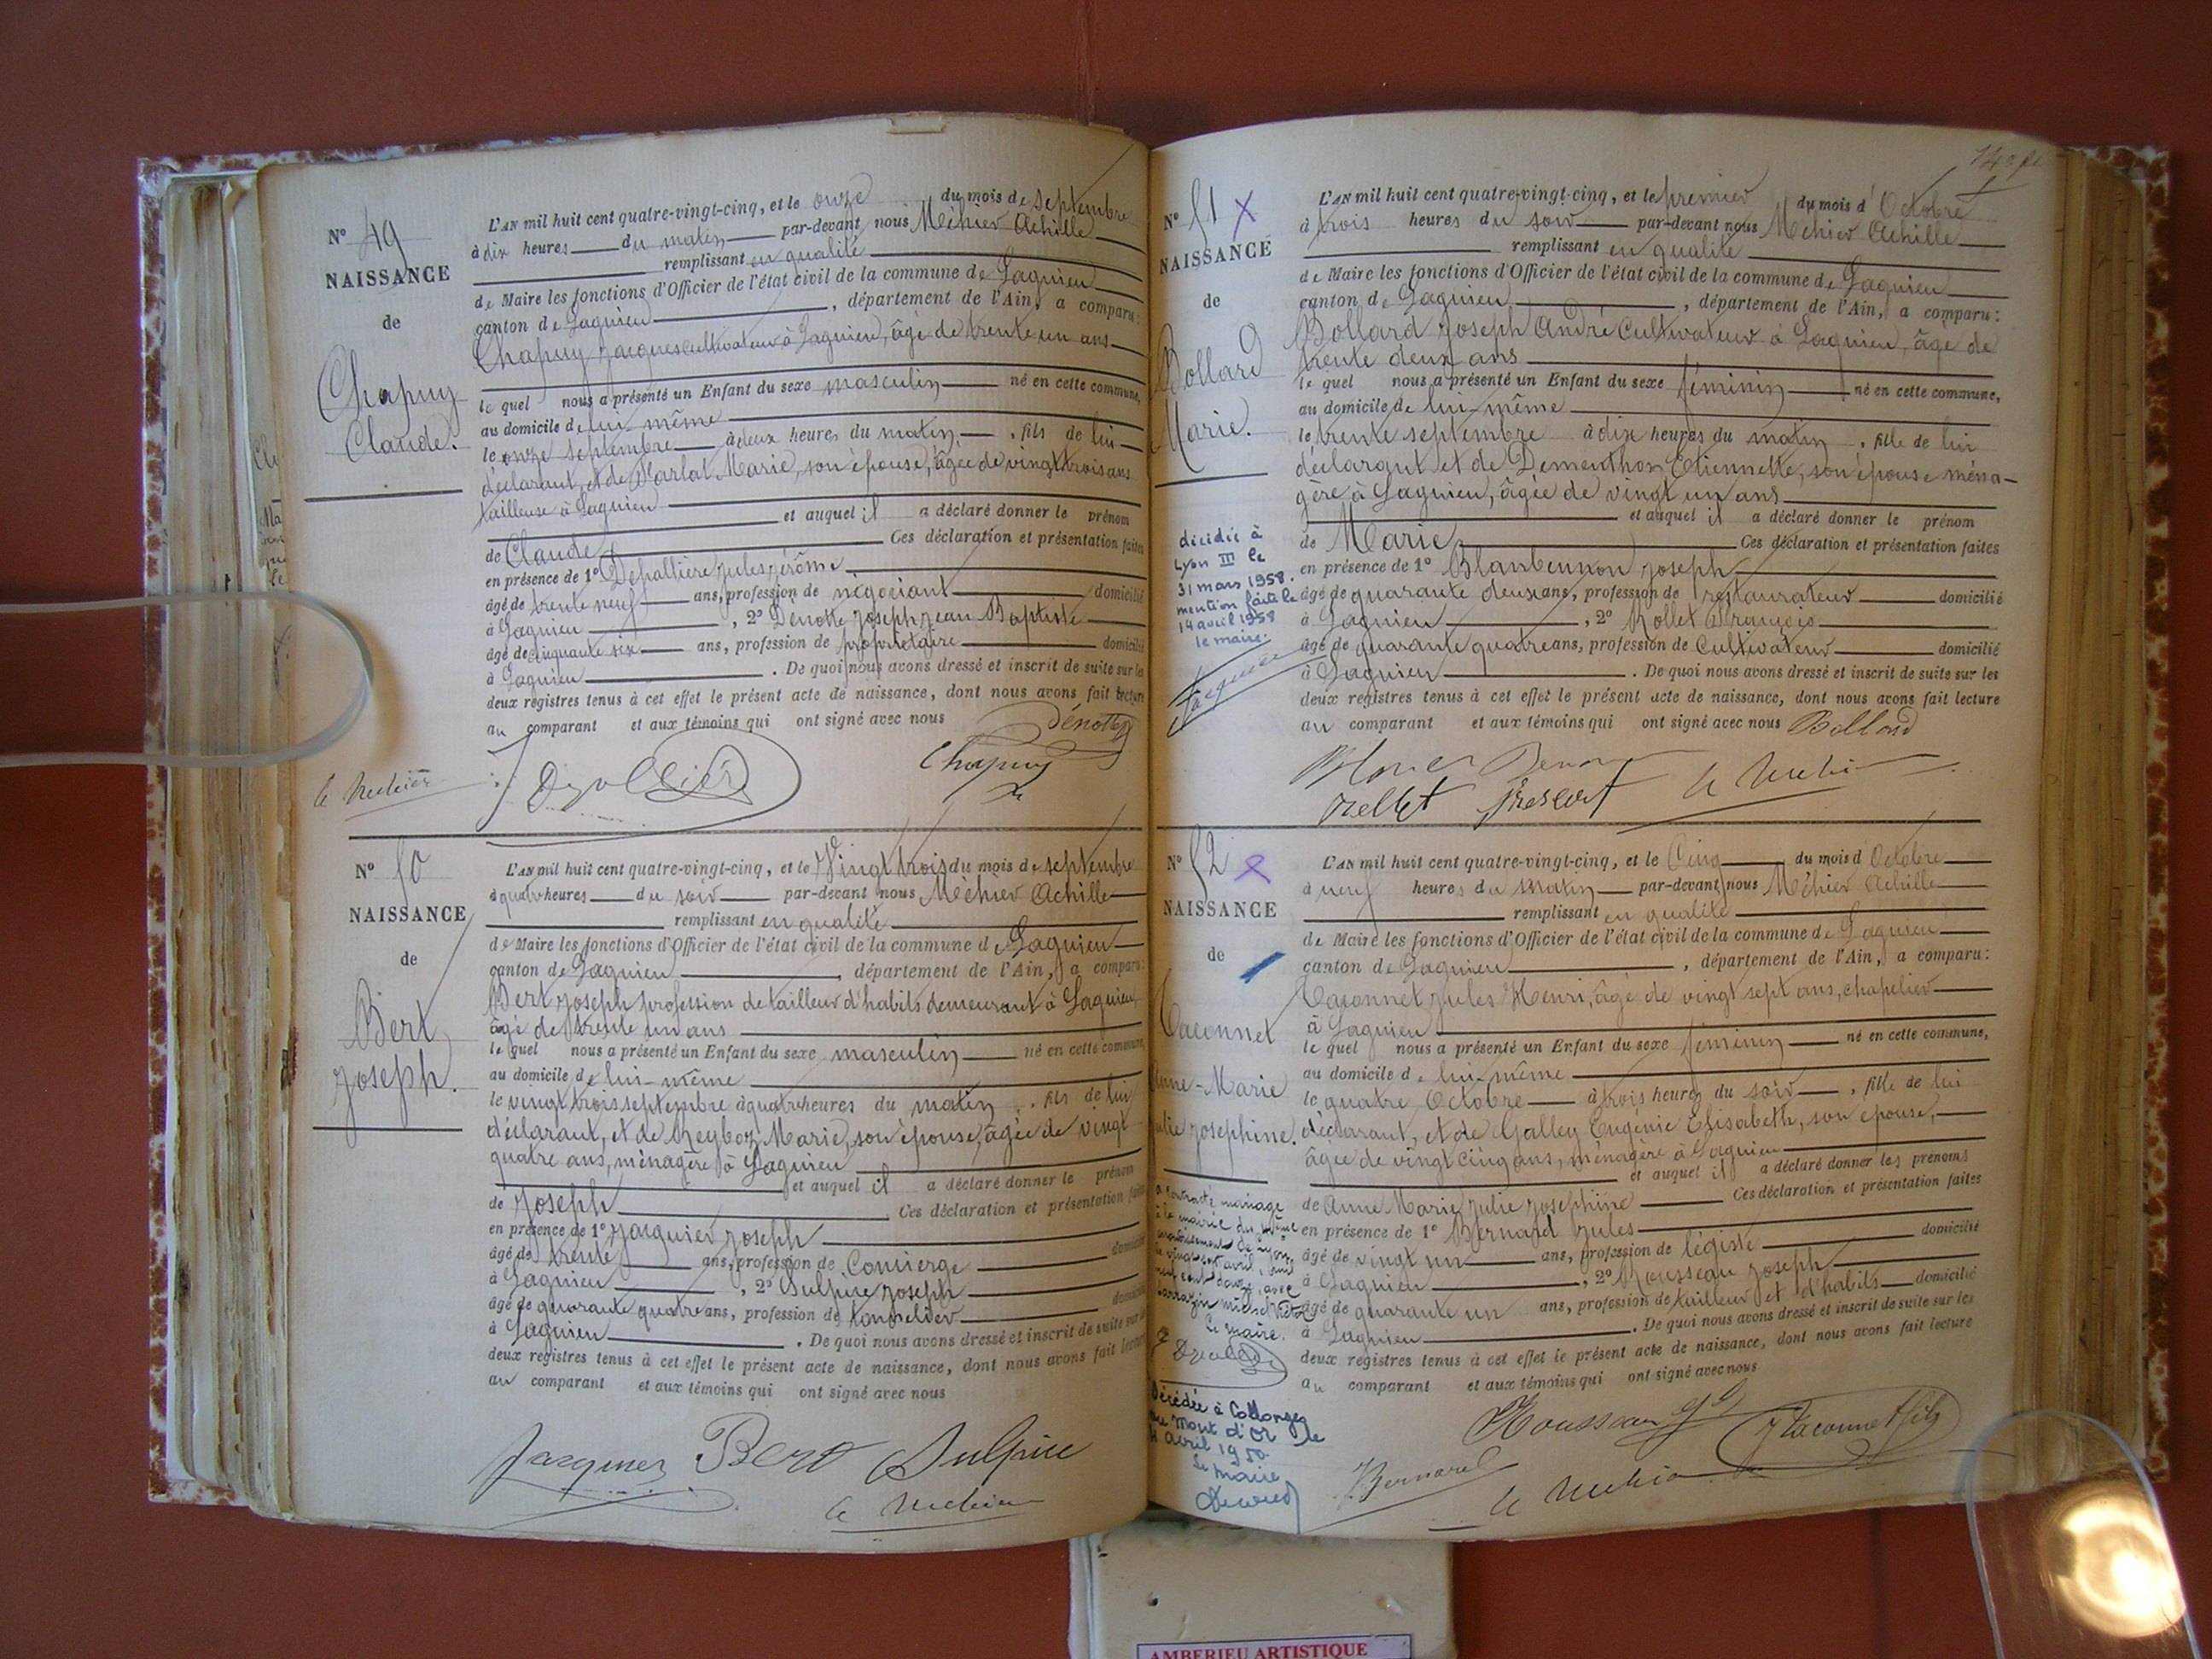 N° 49
NAISSANCE
de
Chapuy
Claude.
L'AN mil huit cent quatre-vingt-cinq, et le onze du mois de septembre
à dix heures du matin par-devant nous Méhier Achille
remplissant en qualité
de Maire les fonctions d'Officier de l'état civil de la commune de Lagnieu
canton de Lagnieu, département de l'Ain, a comparu:
Chapuy Jacques cultivateur à Lagnieu, âgé de trente un ans
le quel nous a présenté un Enfant du sexe masculin né en cette commune,
au domicile de lui-même
le onze septembre à deux heures du matin, fils de lui
déclarant, et de Marie, son épouse, âgée de vingt trois ans
tailleuse à Lagnieu
et auquel il a déclaré donner le prénom
de Claude Ces déclaration et présentation faites
en présence de 1° Depallière Jules Jérôme
âgé de trente neuf ans, profession de négociant domicilié
à Lagnieu, 2° Dénotte Joseph Jean Baptiste
âgé de cinquante six ans, profession de propriétaire domicilié
à Lagnieu. De quoi nous avons dressé et inscrit de suite sur les
deux registres tenus à cet effet le présent acte de naissance, dont nous avons fait lecture
au comparant et aux témoins qui ont signé avec nous
Chapuy
N° 50
NAISSANCE
de
Bert
Joseph.
L'AN mil huit cent quatre-vingt-cinq, et le Vingt trois du mois de septembre
à quatre heures du soir par-devant nous Méhier Achille
remplissant en qualité
de Maire les fonctions d'Officier de l'état civil de la commune de Lagnieu
canton de Lagnieu, département de l'Ain, a comparu:
Bert Joseph profession de tailleur d'habits demeurant à Lagnieu
âgé de trente un ans
le quel nous a présenté un Enfant du sexe masculin né en cette commune,
au domicile de lui-même
le vingt trois septembre à quatre heures du matin, fils de lui
déclarant, et de Marie, son épouse, âgée de vingt
quatre ans, ménagère à Lagnieu
et auquel il a déclaré donner le prénom
de Joseph Ces déclaration et présentation faites
en présence de 1° Jacquier Joseph
âgé de trente ans, profession de Concierge domicilié
à Lagnieu, 2° Sulpice Joseph
âgé de quarante quatre ans, profession de tonnelier domicilié
à Lagnieu. De quoi nous avons dressé et inscrit de suite sur les
deux registres tenus à cet effet le présent acte de naissance, dont nous avons fait lecture
au comparant et aux témoins qui ont signé avec nous
Jacquier Bert Sulpice
N° 51
NAISSANCE
de
Bollard
Marie.
décédée à
Lyon III le
31 mars 1958.
mention faite le
14 avril 1958
le maire.
L'AN mil huit cent quatre-vingt-cinq, et le premier du mois d'Octobre
à trois heures du soir par-devant nous Méhier Achille
remplissant en qualité
de Maire les fonctions d'Officier de l'état civil de la commune de Lagnieu
canton de Lagnieu, département de l'Ain, a comparu:
Bollard Joseph André Cultivateur à Lagnieu, âgé de
trente deux ans
le quel nous a présenté un Enfant du sexe féminin né en cette commune,
au domicile de lui-même
le trente septembre à dix heures du matin, fille de lui
déclarant et de Dementhon Etiennette, son épouse ména-
gère à Lagnieu, âgée de vingt un ans
et auquel il a déclaré donner le prénom
de Marie Ces déclaration et présentation faites
en présence de 1° Joseph
âgé de quarante deux ans, profession de restaurateur domicilié
à Lagnieu, 2° Rollet François
âgé de quarante quatre ans, profession de Cultivateur domicilié
à Lagnieu. De quoi nous avons dressé et inscrit de suite sur les
deux registres tenus à cet effet le présent acte de naissance, dont nous avons fait lecture
au comparant et aux témoins qui ont signé avec nous Bollard
N° 52
NAISSANCE
de
Taconnet
Anne-Marie
Julie Josephine.
a contracté mariage
à la mairie du
arrondissement de Lyon
le maire.
Décédée à Collonges
au Mont d'Or le
avril 1950.
Le maire
L'AN mil huit cent quatre-vingt-cinq, et le Cinq du mois d'Octobre
à neuf heures du matin par-devant nous Méhier Achille
remplissant en qualité
de Maire les fonctions d'Officier de l'état civil de la commune de Lagnieu
canton de Lagnieu, département de l'Ain, a comparu:
Taconnet Jules Henri, âgé de vingt sept ans, chapelier
à Lagnieu
le quel nous a présenté un Enfant du sexe féminin né en cette commune,
au domicile de lui-même
le quatre Octobre à trois heures du soir, fille de lui
déclarant, et de Galley Eugénie Elisabeth, son épouse,
âgée de vingt cinq ans, ménagère à Lagnieu
et auquel il a déclaré donner les prénoms
de Anne Marie Julie Josephine Ces déclaration et présentation faites
en présence de 1° Bernard Jules
âgé de vingt un ans, profession de légiste domicilié
à Lagnieu, 2° Housseau Joseph
âgé de quarante un ans, profession de tailleur d'habits domicilié
à Lagnieu. De quoi nous avons dressé et inscrit de suite sur les
deux registres tenus à cet effet le présent acte de naissance, dont nous avons fait lecture
au comparant et aux témoins qui ont signé avec nous
Bernard
AMBERIEU ARTISTIQUE